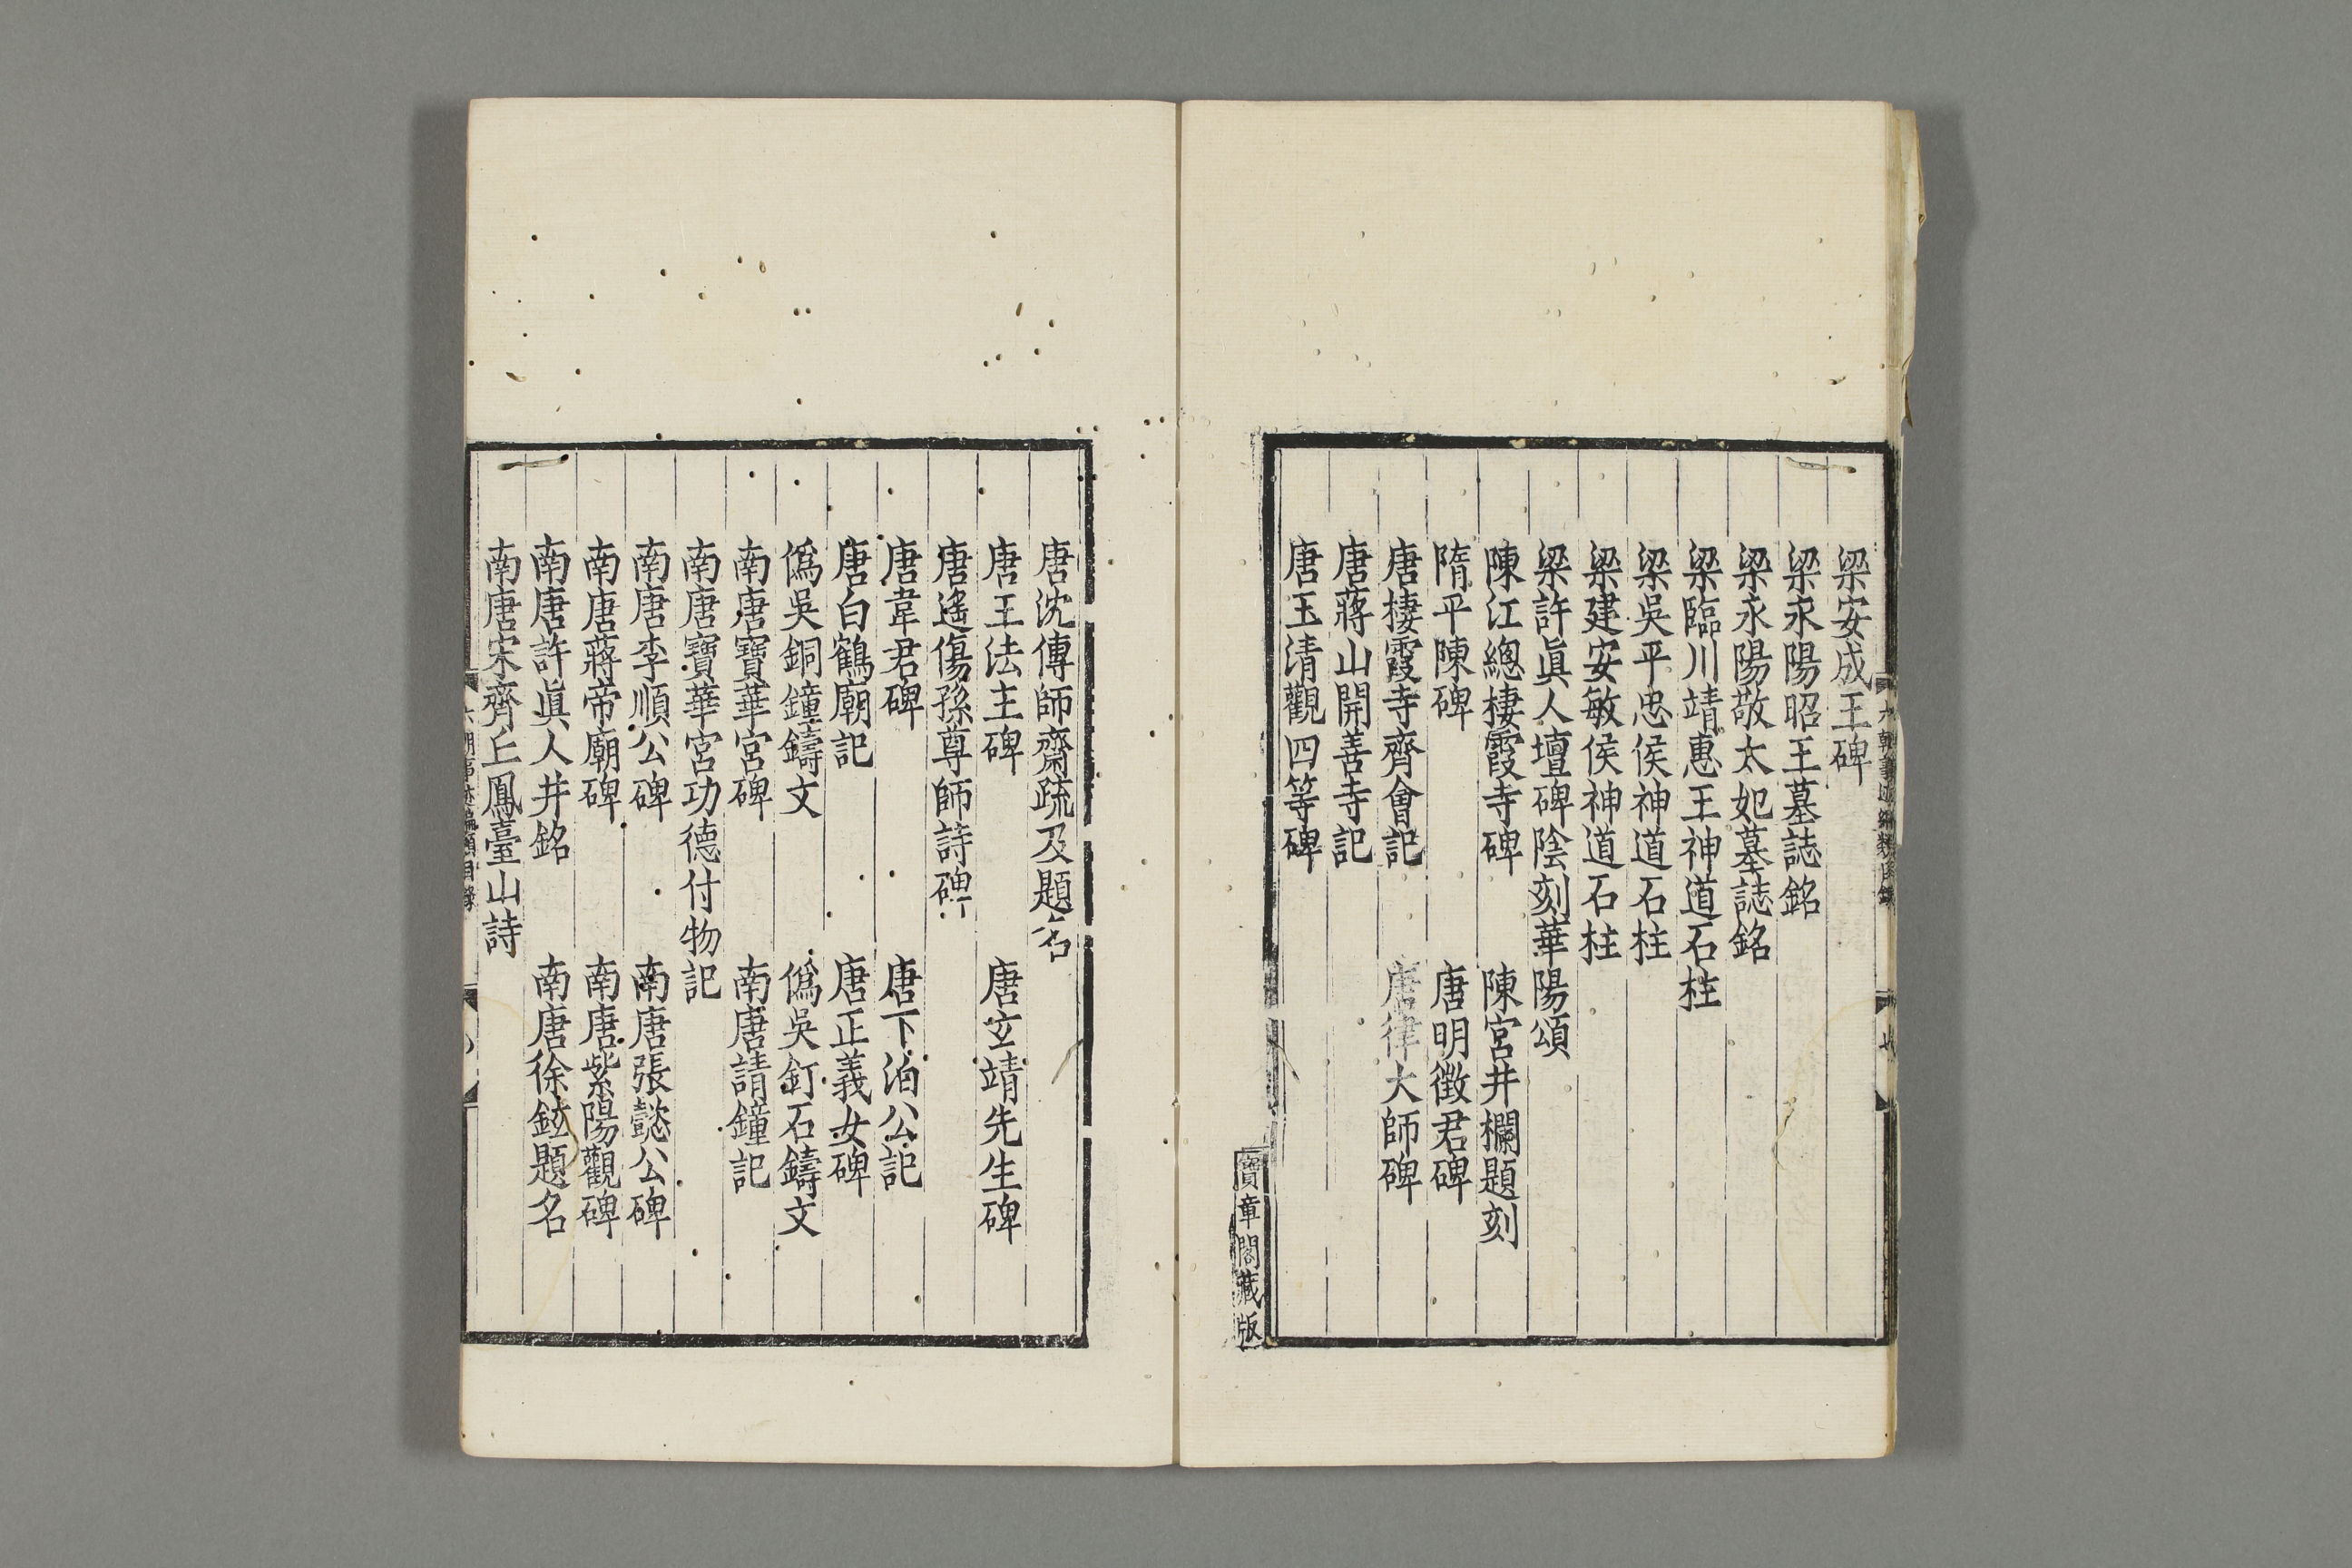 梁安成王碑
梁永陽昭王墓誌銘
梁永陽敬太妃墓誌銘
梁臨川靖惠王神道石柱
梁吳平忠侯神道石柱
梁建安敏侯神道石柱
梁許眞人壇碑陰刻華陽頌
陳江總棲霞寺碑 陳宮井欄題刻
隋平陳碑 唐明徵君碑
唐棲霞寺齊會記 唐律大師碑
唐蔣山開善寺記
唐玉清觀四等碑
寶章閣藏版
唐沈傳師齋疏及題名
唐王法主碑 唐玄靖先生碑
唐遙傷孫尊師詩碑
唐韋君碑 唐下泊公記
唐白鶴廟記 唐正義女碑
僞吳銅鐘鑄文 僞吳釘石鑄文
南唐寶華宮碑 南唐請鐘記
南唐寶華宮功德付物記
南唐李順公碑 南唐張懿公碑
南唐蔣帝廟碑 南唐紫陽觀碑
南唐許眞人井銘 南唐徐鉉題名
南唐宋齊丘鳳臺山詩